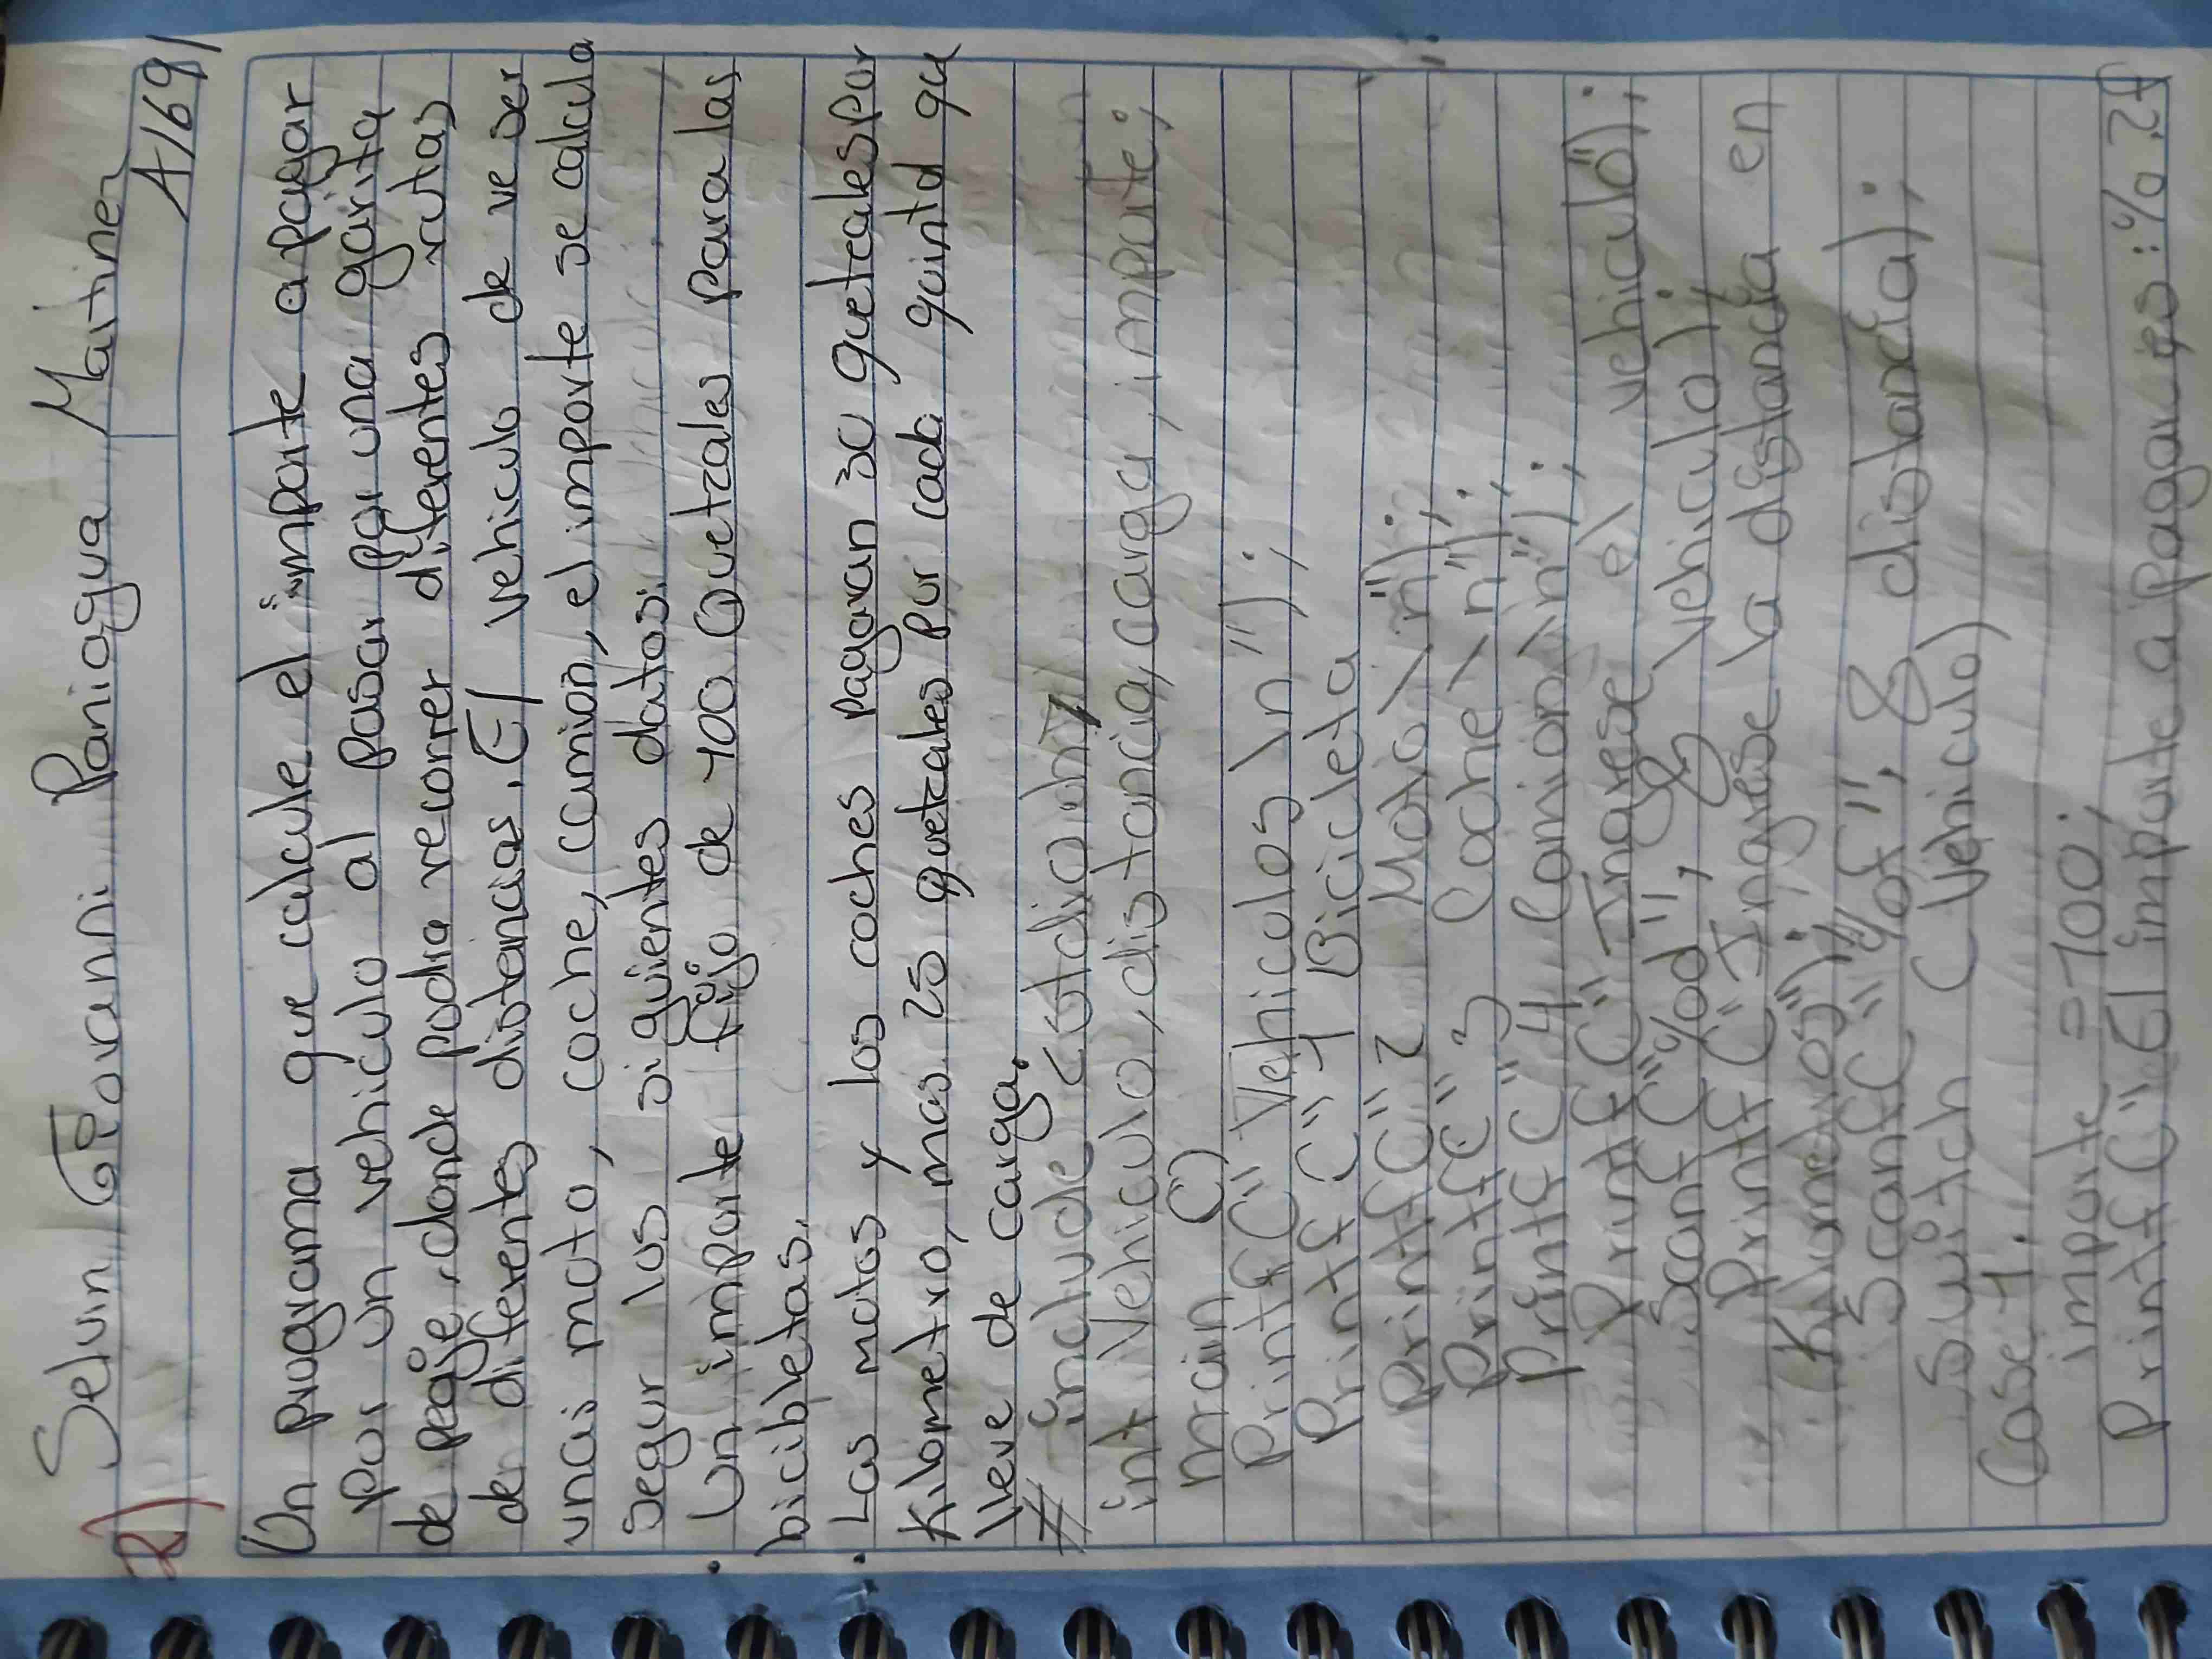 Selvin Geovanni Paniagua Martinez
A/69/
2)
Un programa que calcule el importe a pagar
por un vehiculo al pasar por una garita
de peaje, donde podia recorrer diferentes rutas
de diferentes distancias. El vehiculo de ve ser
unai moto, coche, camion, el importe se calcula
segur los siguientes datos:
Un importe fijo de 100 Quetzales para las
bicibletas.
• Las motos y los coches pagaran 30 quetcales por
Kilometro, mas 25 quetzales por cada quintd qu
lleve de carga.
# include <stdio.h>
int Vehiculo, distancia, carga, importe;
main ()
printf(" Vehiculos \n");
printf (" 1 Bicicleta
printf(" 2 Moto \n");
printf(" 3 Coche \n");
printf (" 4 Comion \n");
printf (" Ingrese el vehiculo");
scanf ("%d", & vehiculo);
printf ("Ingrese la distancia en
Kilometros");
scanf("%f", & distancia);
Switch (Vehiculo)
Case 1.
importe =100;
printf(" El importe a pagar es:%.2f